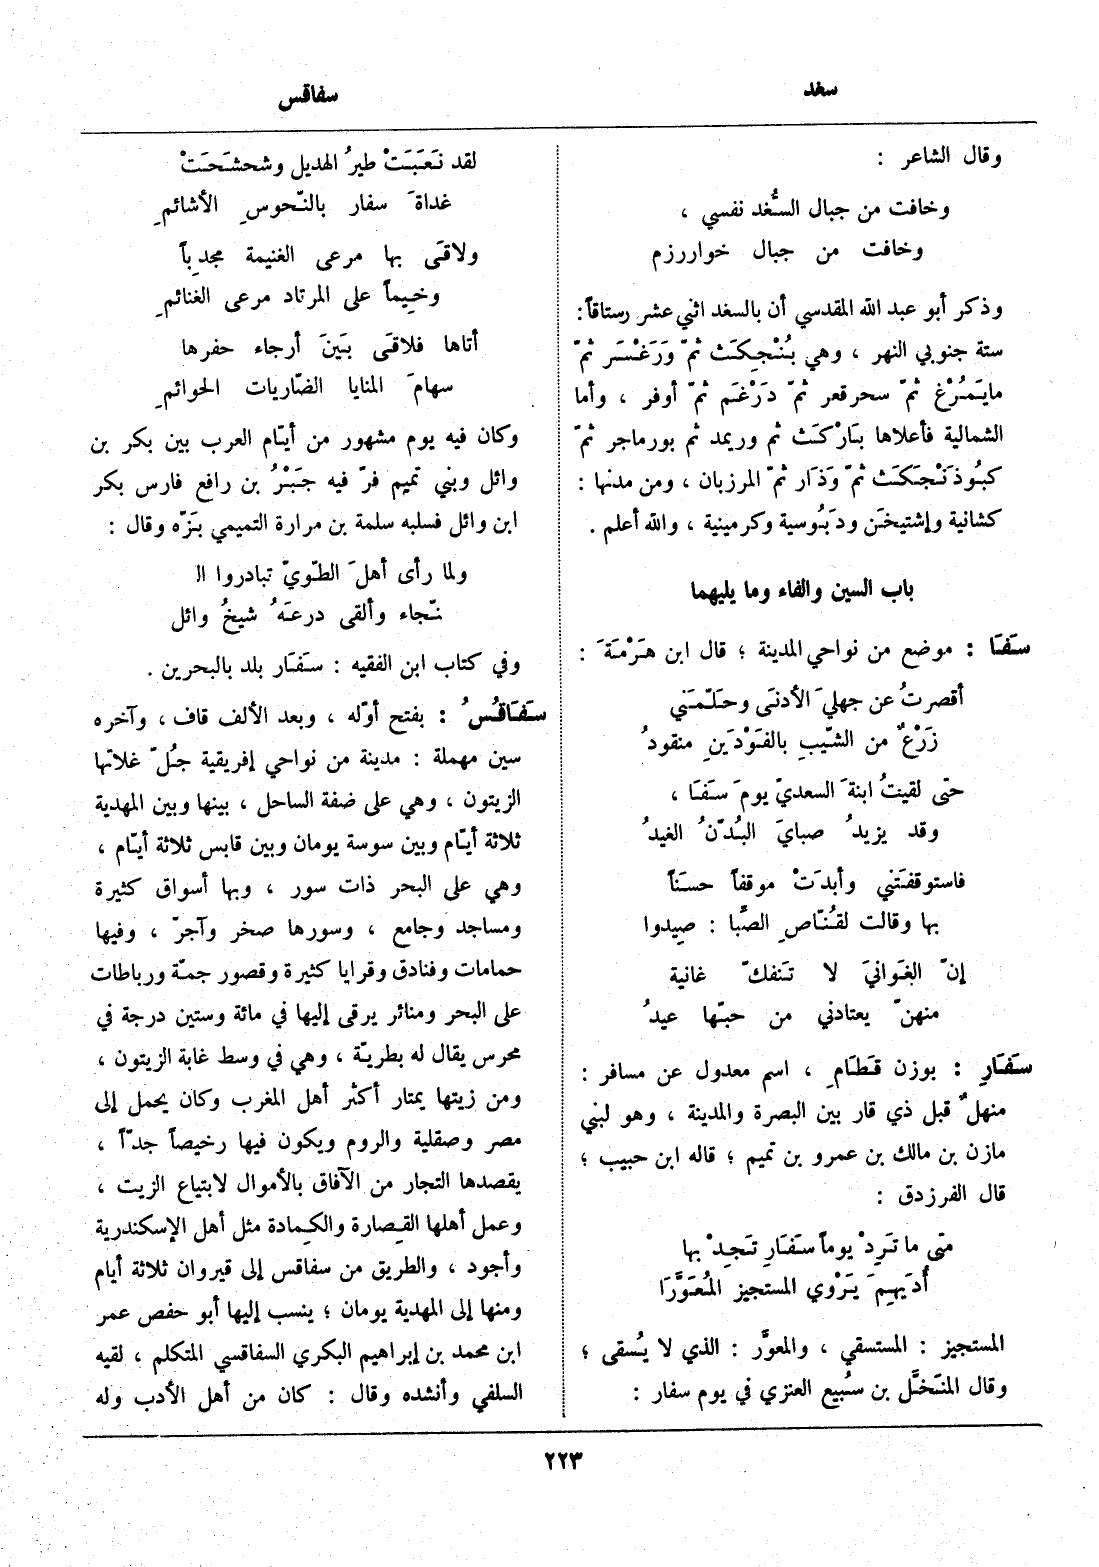 سغد
سفاقس
وقال الشاعر :
وخافت من جبال السُّغد نفسي ،
وخافت من جبال خواررزم
وذكر أبو عبد الله المقدسي أن بالسغد اثني عشر رستاقاً :
ستة جنوبي النهر ، وهي بُنْجِكَث ثمّ وَرَغْسَر ثمّ
مايَمُرْغ ثمّ سحرقعر ثمّ دَرْغَم ثمّ أوفر ، وأما
الشمالية فأعلاها بَارْكَث ثم وريمد ثم بورماجر ثمّ
كبُوذَنْجَكَث ثمّ وَذَار ثمّ المرزبان ، ومن مدنها :
كشانية وإشتيخَن ودَبُوسية وكرمينية ، والله أعلم .
باب السين والفاء وما يليهما
سَفَا : موضع من نواحي المدينة ؛ قال ابن هَرْمَةَ :
أقصرتُ عن جهليَ الأدنَى وحَلّمَني
زَرْعٌ من الشّيبِ بالفَوْدَينِ منقودُ
حتى لقيتُ ابنةَ السعديّ يومَ سَفَا ،
وقد يزيدُ صبايَ البُدّنُ الغيدُ
فاستوقفَتني وأبدَتْ موقفاً حسَناً
بها وقالت لقُنّاصِ الصِّبا : صِيدوا
إنّ الغَوانيَ لا تَنفكّ غانية
منهنّ يعتادني من حبّها عيدُ
سَفَارِ : بوزن قَطَامِ ، اسم معدول عن مسافر :
منهلٌ قبل ذي قار بين البصرة والمدينة ، وهو لبني
مازن بن مالك بن عمرو بن تميم ؛ قاله ابن حبيب ؛
قال الفرزدق :
متى ما تَرِدْ يوماً سَفَارِ تَجِدْ بها
أُدَيهِمَ يَرْوي المستجيز المُعَوَّرَا
المستجيز : المستسقي ، والمعوَّر : الذي لا يُسقى ؛
وقال المنَخَّل بن سُبيع العنزي في يوم سفار :
لقد نَعَبَتْ طيرُ الهديل وشحشَحَتْ
غداةَ سفار بالنّحوسِ الأشائمِ
ولاقَى بها مرعى الغنيمة مجدِباً
وخِيماً على المرتاد مرعى الغنائمِ
أتاها فلاقَى بَينَ أرجاء حفرها
سهامَ المنايا الضّاريات الحوائمِ
وكان فيه يوم مشهور من أيّام العرب بين بكر بن
وائل وبني تميم فرّ فيه جَبْرُ بن رافع فارس بكر
ابن وائل فسلبه سلمة بن مرارة التميمي بَزّه وقال :
ولما رأى أهلَ الطّويّ تبادروا ال
نّجاء وألقى درعَهُ شيخُ وائل
وفي كتاب ابن الفقيه : سَفَار بلد بالبحرين .
سَفَاقُسُ : بفتح أوّله ، وبعد الألف قاف ، وآخره
سين مهملة : مدينة من نواحي إفريقية جُلّ غلاتها
الزيتون ، وهي على ضفة الساحل ، بينها وبين المهدية
ثلاثة أيّام وبين سوسة يومان وبين قابس ثلاثة أيّام ،
وهي على البحر ذات سور ، وبها أسواق كثيرة
ومساجد وجامع ، وسورها صخر وآجرّ ، وفيها
حمامات وفنادق وقرايا كثيرة وقصور جمّة ورباطات
على البحر ومنائر يرقى إليها في مائة وستين درجة في
محرس يقال له بطريّة ، وهي في وسط غابة الزيتون ،
ومن زيتها يمتار أكثر أهل المغرب وكان يحمل إلى
مصر وصقلية والروم ويكون فيها رخيصاً جدّاً ،
يقصدها التجار من الآفاق بالأموال لابتياع الزيت ،
وعمل أهلها القِصارة والكِمادة مثل أهل الإسكندرية
وأجود ، والطريق من سفاقس إلى قيروان ثلاثة أيام
ومنها إلى المهدية يومان ؛ ينسب إليها أبو حفص عمر
ابن محمد بن إبراهيم البكري السفاقسي المتكلم ، لقيه
السلفي وأنشده وقال : كان من أهل الأدب وله
٢٢٣